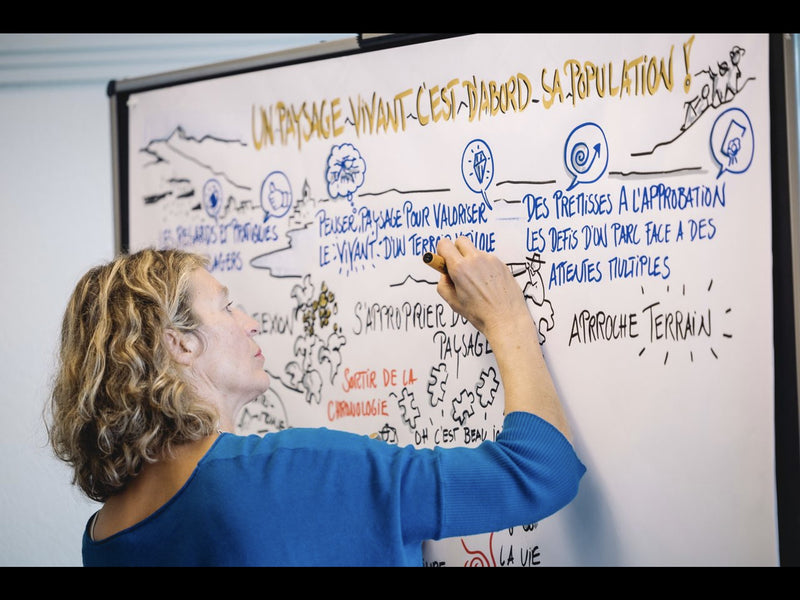 UN PAYSAGE VIVANT C'EST D'ABORD SA POPULATION !
LES REGARDS ET PRATIQUES
PENSER PAYSAGE POUR VALORISER
LE "VIVANT" D'UN
DES PRÉMISSES À L'APPROBATION
LES DÉFIS D'UN PARC FACE À DES
ATTENTES MULTIPLES
S'APPROPRIER
PAYSAGE
APRROCHE TERRAIN
SORTIR DE LA
CHRONOLOGIE
OH C'EST BEAU
LA VIE